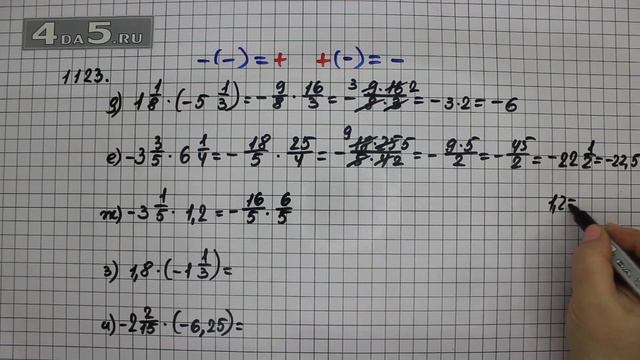 4DA5.RU
-(-)=+ +(-)=-
1123.
д) 1 1/8 · (-5 1/3) = -9/8 · 16/3 = -(9·16)/(8·3) 3 2 = -3·2 = -6
е) -3 3/5 · 6 1/4 = -18/5 · 25/4 = -(18·25)/(5·4) 9 5 2 = -(9·5)/2 = -45/2 = -22 1/2 = -22,5
ж) -3 1/5 · 1,2 = -16/5 · 6/5
1,2=
з) 1,8 · (-1 1/3) =
и) -2 2/15 · (-6,25) =